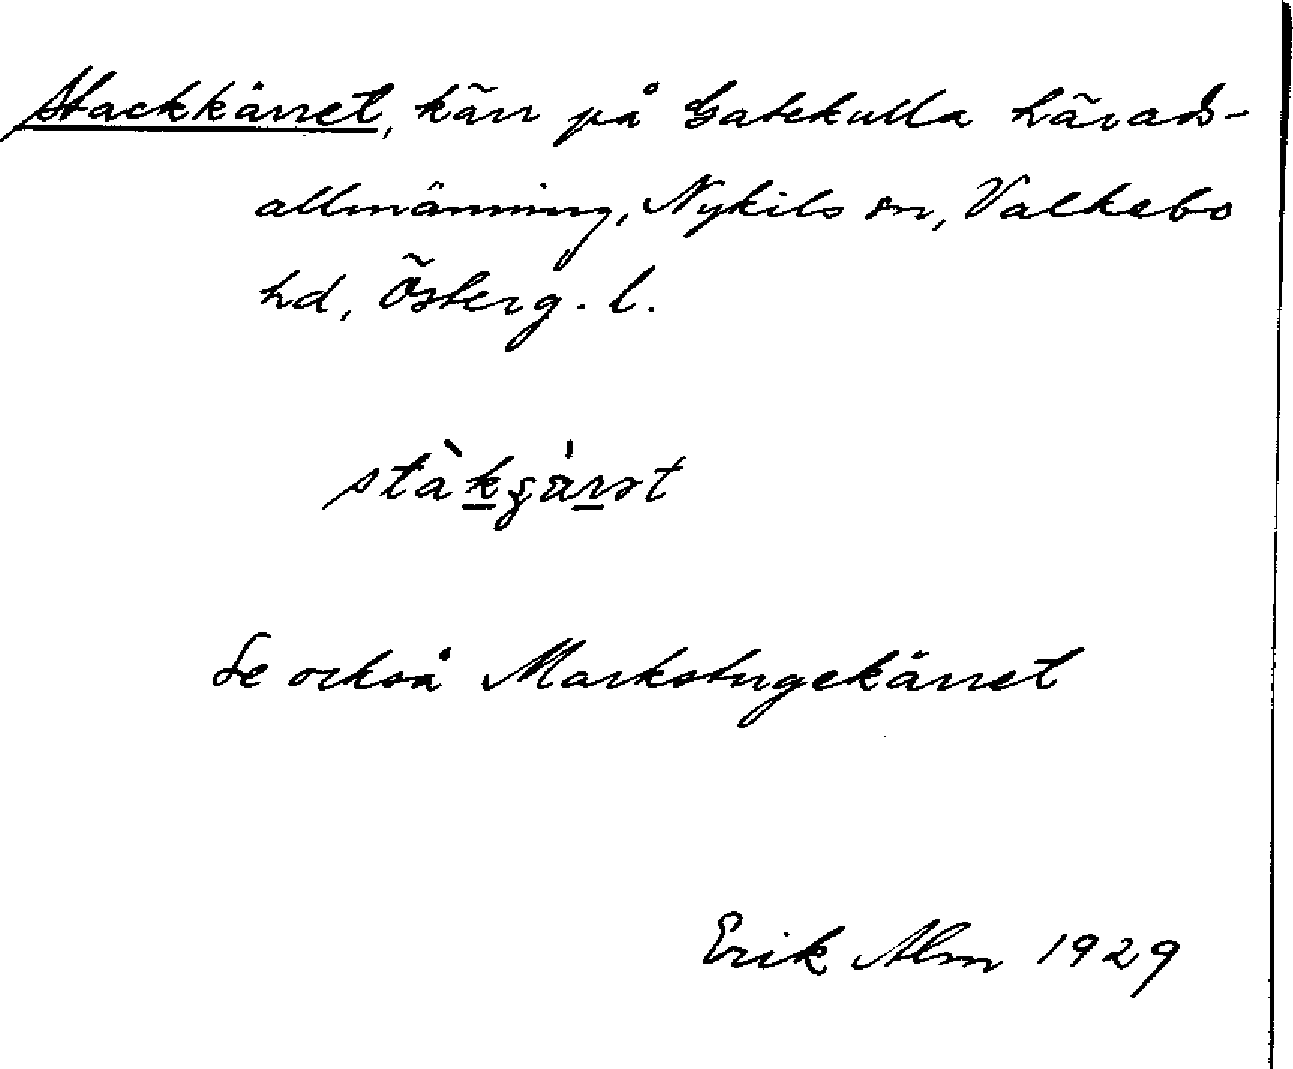 Stackkärret, kärr på Gatekulla härads-
allmänning, Nykils sn, Valkebo
hd, Österg. l.
Se också Markstugekärret
Erik Alm 1929